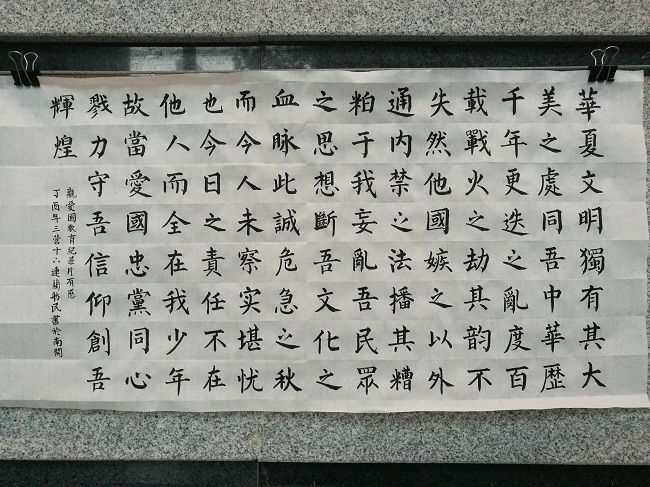 華夏文明獨有其大
美之處同吾中華歴
千年更迭之亂度百
載戰火之劫其韵不
失然他國嫉之以外
通内禁之法播其糟
粕于我妄亂吾民眾
之思想斷吾文化之
血脉此誠危急之秋
而今人未察实堪忧
也今日之責任不在
他人而全在我少年
故當愛國忠黨同心
戮力守吾信仰創吾
輝煌
觀愛國教育紀录片有感
丁酉年三营十六連民書於南開